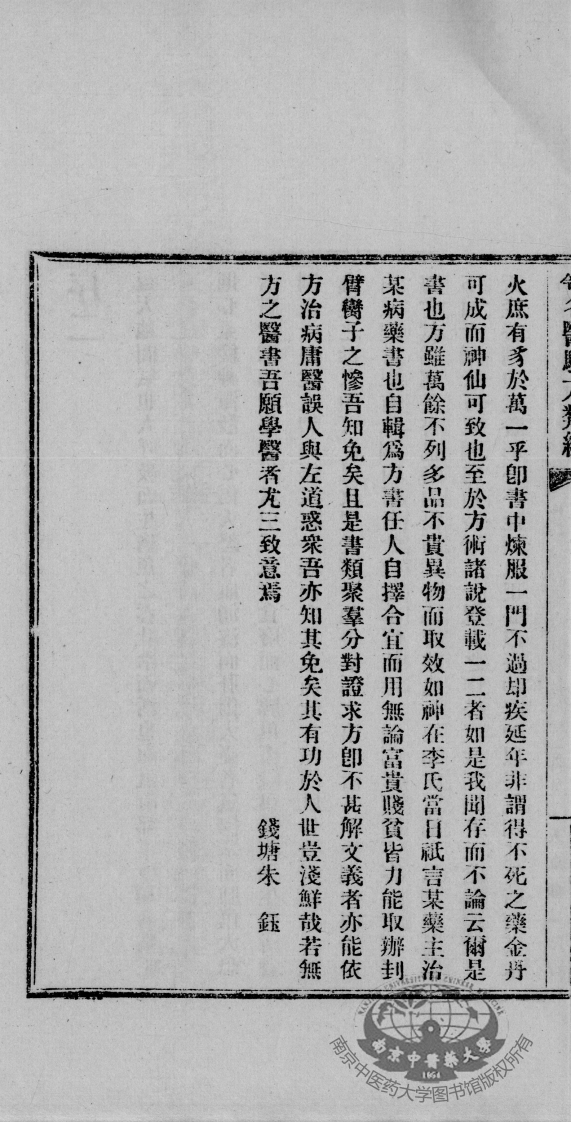 火庶有豸於萬一乎卽書中煉服一門不過却疾延年非謂得不死之藥金丹
可成而神仙可致也至於方術諸說登載一二者如是我聞存而不論云爾是
書也方雖萬餘不列多品不貴異物而取效如神在李氏當日祇言某藥主治
某病藥書也自輯爲方書任人自擇合宜而用無論富貴賤貧皆力能取辦刲
臂臠子之慘吾知免矣且是書類聚羣分對證求方卽不甚解文義者亦能依
方治病庸醫誤人與左道惑衆吾亦知其免矣其有功於人世豈淺鮮哉若無
方之醫書吾願學醫者尤三致意焉
錢塘朱 鈺
南京中醫藥大學
1954
南京中医药大学图书馆版权所有